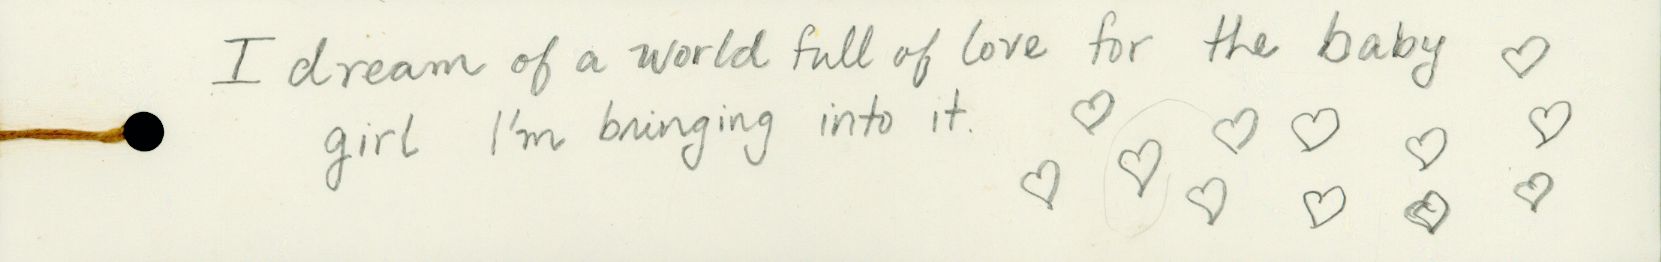 I dream of a world full of love for the baby
girl I'm bringing into it.